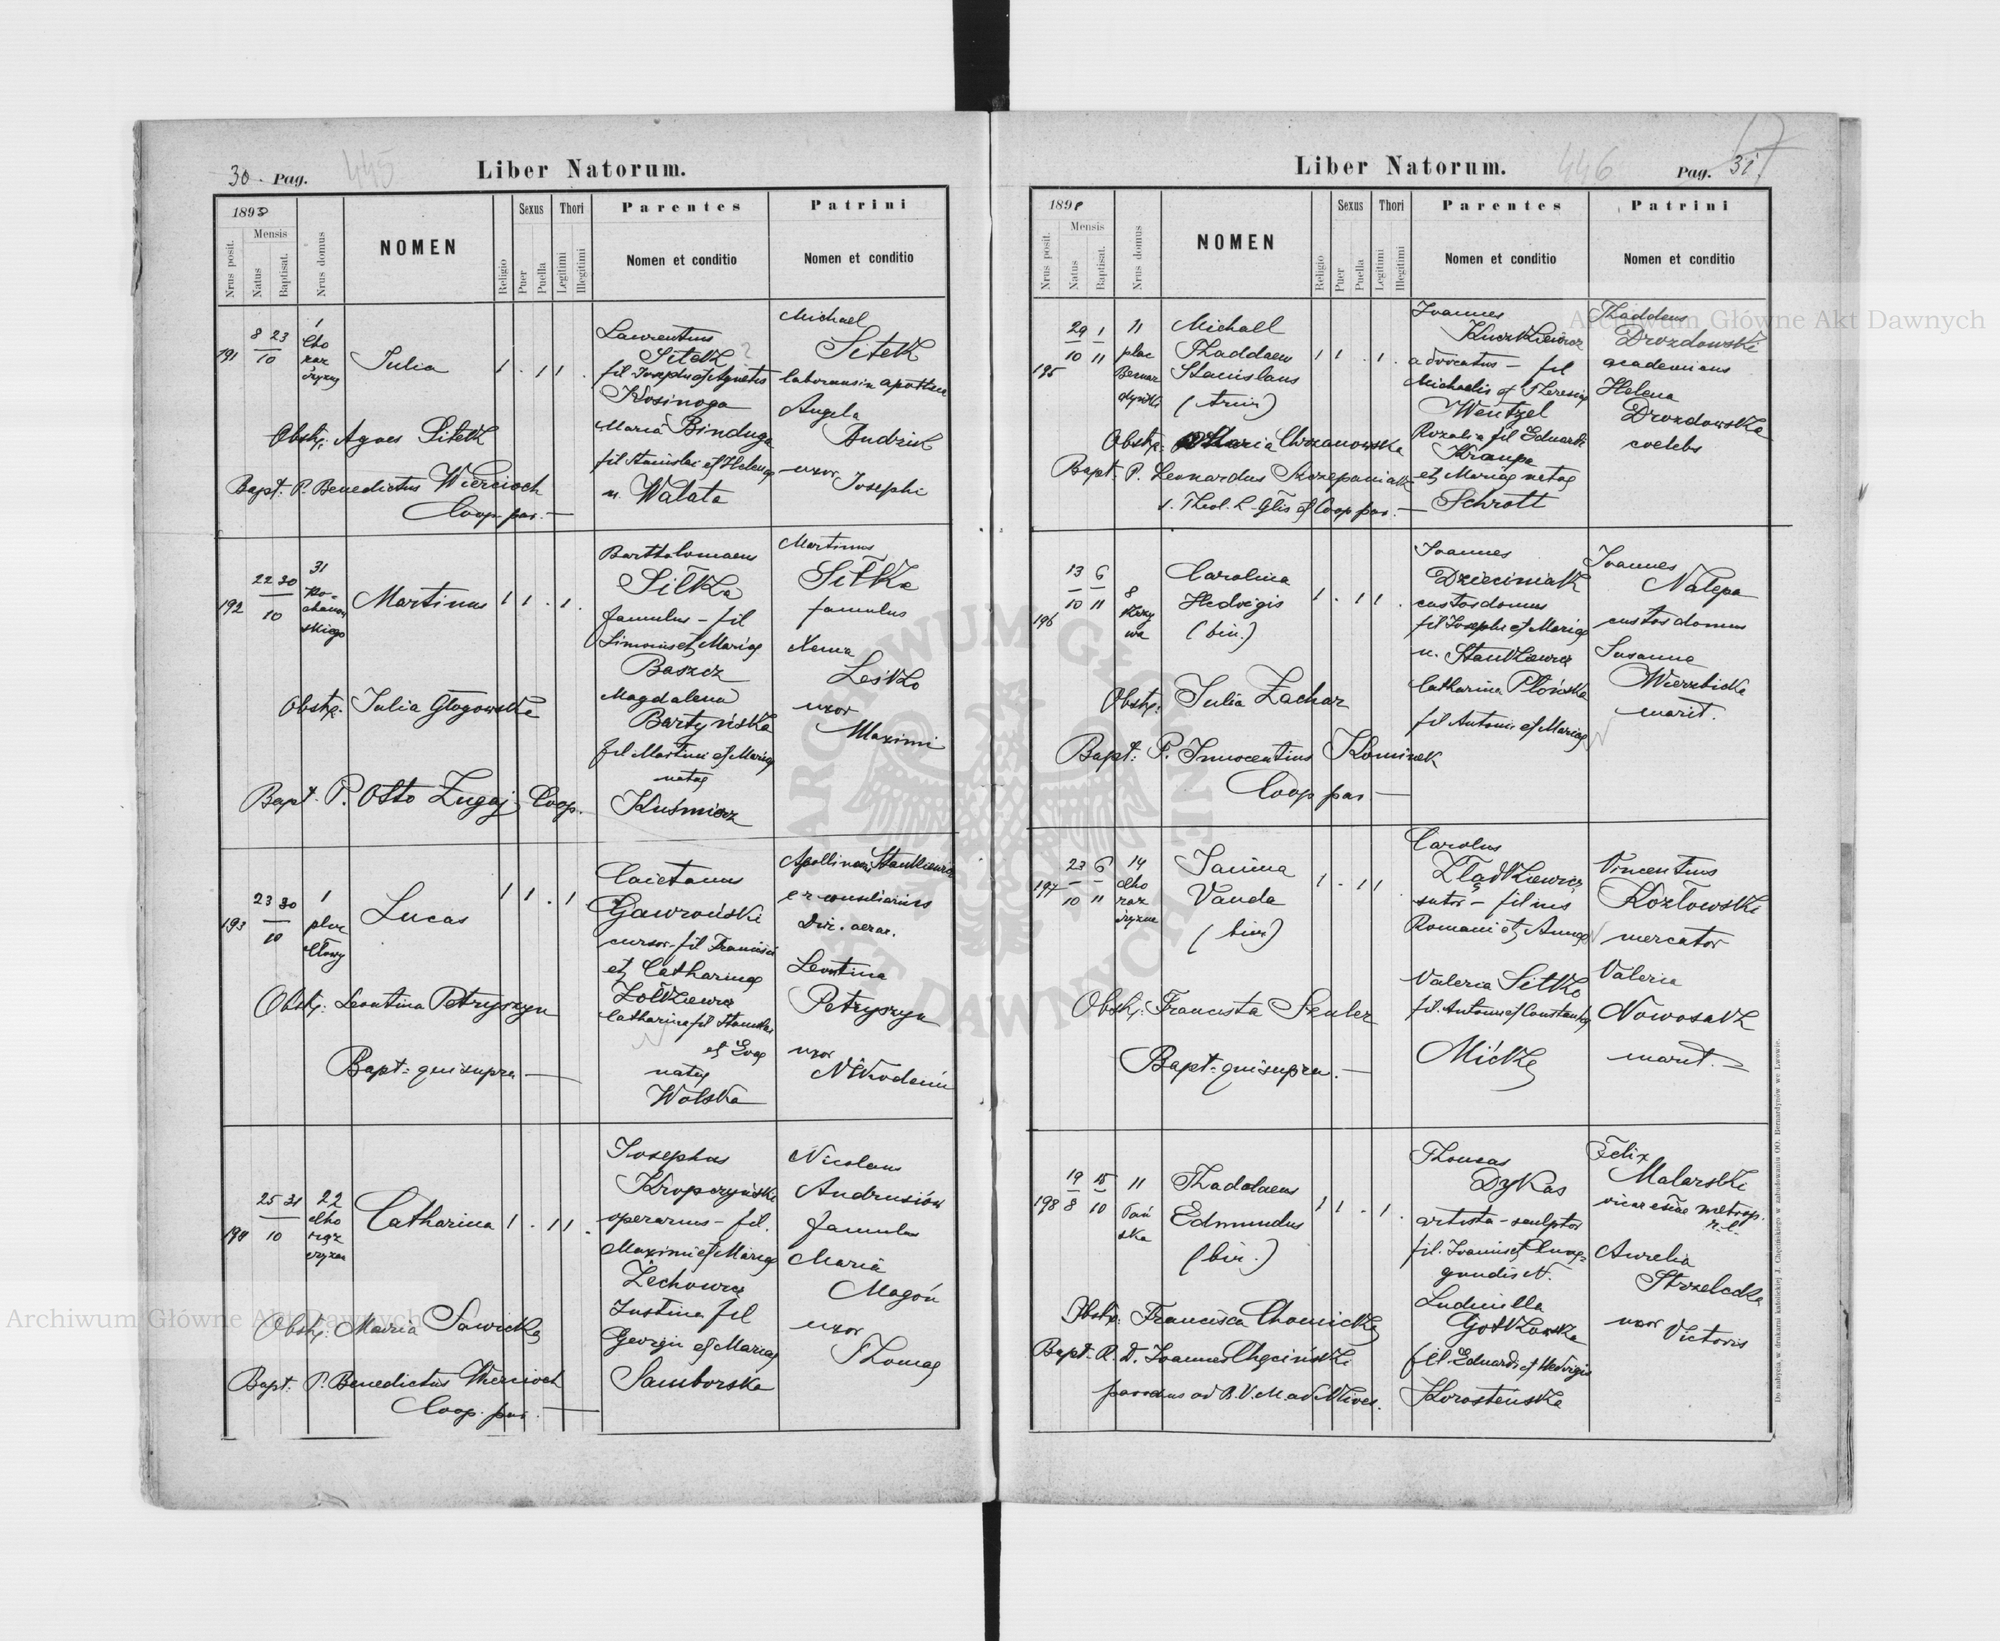 30. Pag.
445
Liber Natorum.
189
Nrus posit.
Mensis
Natus
Baptisat.
Nrus domus
NOMEN
Religio
Sexus
Puer
Puella
Thori
Legitimi
Illegitimi
Parentes
Nomen et conditio
Patrini
Nomen et conditio
191
8 23
10
1
Julia
1 . 1 1 .
Laurentius
Sitek ?
fil Josephi et Agnetis
Kosinoga
Maria Binduga
fil Stanislai et Helenae
n. Walata
Michael
Sitek
Angela
Andziak
uxor Josephi
Obstx: Agnes Sitek
Bapt. P. Benedictus Wiercioch
Coop. par. —
192
22 30
10
31
Ko-
chanow
skiego
Martinus
1 1 . 1 .
Bartholomaeus
Sitka
famulus - fil
Simonis et Mariae
Baszcz
Magdalena
Bartyńska
fil Martini et Mariae
natae
Kuśmierz
Martinus
Sitka
famulus
Leśko
uxor
Maximi
Obstx. Julia Głogowska
Bapt. P. Otto Zugaj Coop.
193
23 30
10
1
plac
Lucas
1 1 . 1 .
Caietanus
Gawroński
cursor - fil Francisci
et Catharinae
Żółkiewicz
Catharina fil Stanislai
et Evae
natae
Wolska
Apollinaris Stankiewicz
Dir. aerar.
Leontina
Petryszyn
uxor
Nikodemi
Obstx: Leontina Petryszyn
Bapt: qui supra —
194
25 31
10
22
Catharina
1 . 1 1 .
Josephus
Kropczyński
operarius - fil.
Maximi et Mariae
Żechowicz
Justina fil
Georgii et Mariae
Samborska
Nicolaus
Andrusiów
famulus
Maria
Magoń
uxor
Thomae
Obstx: Maria Sawicka
Bapt. P. Benedictus Wiercioch
Coop. par. —
Liber Natorum.
446
Pag. 31.
17
189
Nrus posit.
Mensis
Natus
Baptisat.
Nrus domus
NOMEN
Religio
Sexus
Puer
Puella
Thori
Legitimi
Illegitimi
Parentes
Nomen et conditio
Patrini
Nomen et conditio
195
29 1
10 11
11
plac
Bernar
dyński
Michael
Thaddaeus
Stanislaus
(trin)
1 1 . 1 .
Joannes
advocatus - fil
Michaelis et Theresiae
Wentzel
Rozalia fil Eduardi
Kraupa
et Mariae natae
Schrott
Thaddeus
Drozdowski
academicus
Helena
Drozdowska
coelebs
Obstx: Maria Chrzanowska
Bapt. P. Leonardus Szczepaniak
s. Theol. L. Glis et Coop par. —
196
13 6
10 11
8
Krzy
wa
Carolina
Hedvigis
(bin.)
1 . 1 1 .
Joannes
Dzieciniak
custos domus
fil Josephi et Mariae
n. Stankiewicz
Catharina Płońska
fil Antonii et Mariae
Joannes
Nalepa
custos domus
Susanna
Wierzbicka
marit.
Obstx: Julia Zachar
Bapt: P. Innocentius Kominek
Coop par —
197
23 6
10 11
14
Janina
Vanda
(bin)
1 . 1 1 .
Carolus
sutor - filius
Romani et Annae
Valeria Sitko
fil. Antonii et Constantiae
Micke
Vincentius
Kozłowski
mercator
Valeria
Nowosad
marit. —
Obstx: Francisca
Bapt: qui supra. —
198
19 15
8 10
11
Pań
ska
Thaddaeus
Edmundus
(bin.)
1 1 . 1 .
Thomas
Dykas
artista - sculptor
fil. Joannis et Cune-
gundis N.
Ludmilla
Gotkowska
fil. Eduardi et Hedvigis
Korosteńska
Felix
Malarski
vicar eccl̄iae metrop.
r. l.
Aurelia
Strzelecka
uxor Victoris
Obstx: Francisca Chomicka
Bapt. R. D. Joannes Chęciński
parochus ad B. V. M. ad Nives.
Do nabycia w drukarni katolickiej J. Chęcińskiego w zabudowaniu OO. Bernardynów we Lwowie.
Archiwum Główne Akt Dawnych
Archiwum Główne Akt Dawnych
ARCHIWUM GŁÓWNE AKT DAWNYCH